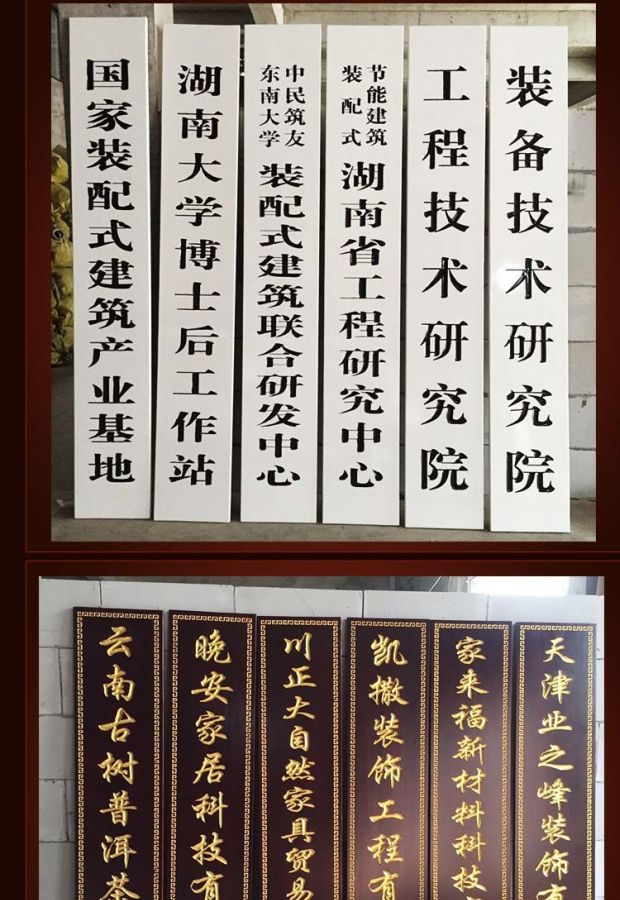 国家装配式建筑产业基地
湖南大学博士后工作站
中民筑友
东南大学
装配式建筑联合研发中心
节能建筑
装配式
湖南省工程研究中心
工程技术研究院
装备技术研究院
云南古树普洱茶
晚安家居科技有
川正大自然家具贸易
凯撒装饰工程有
家来福新材料科技
天津业之峰装饰有